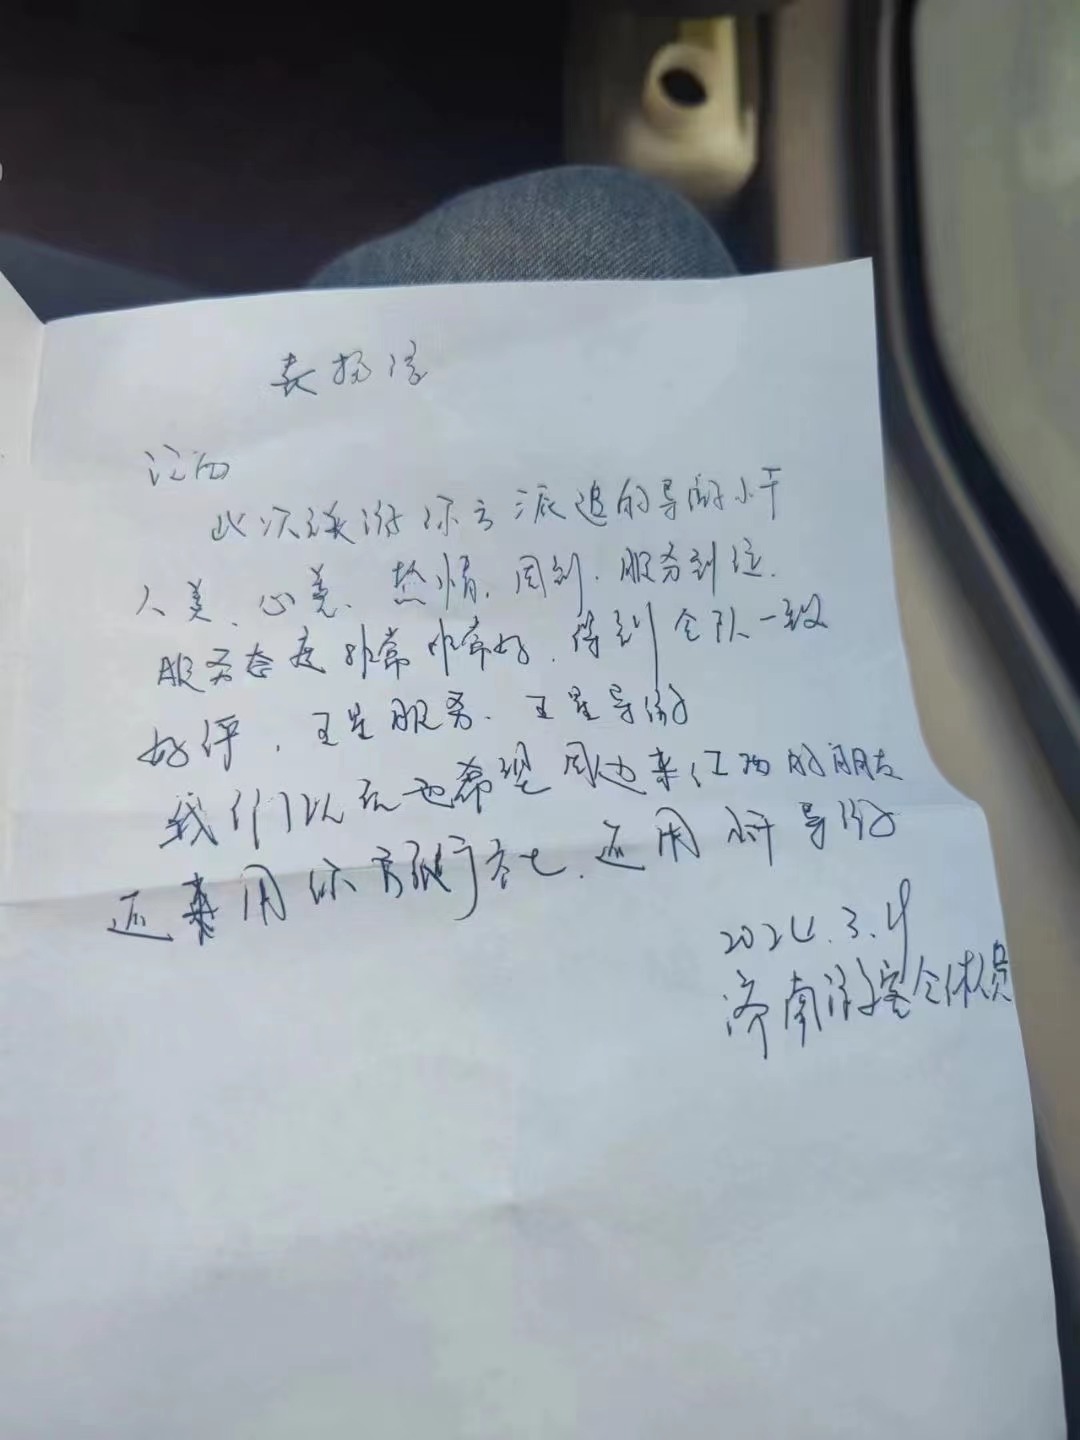 表扬信
江西
此次旅游你方派遣的导游小干
人美、心美、热情、周到、服务到位.
服务态度非常非常好、得到全队一致
好评、五星服务、五星导游
我们以后也希望周边来江西的朋友
还来用你方旅行社、还用小干导游
2024.3.4
济南游客全体人员